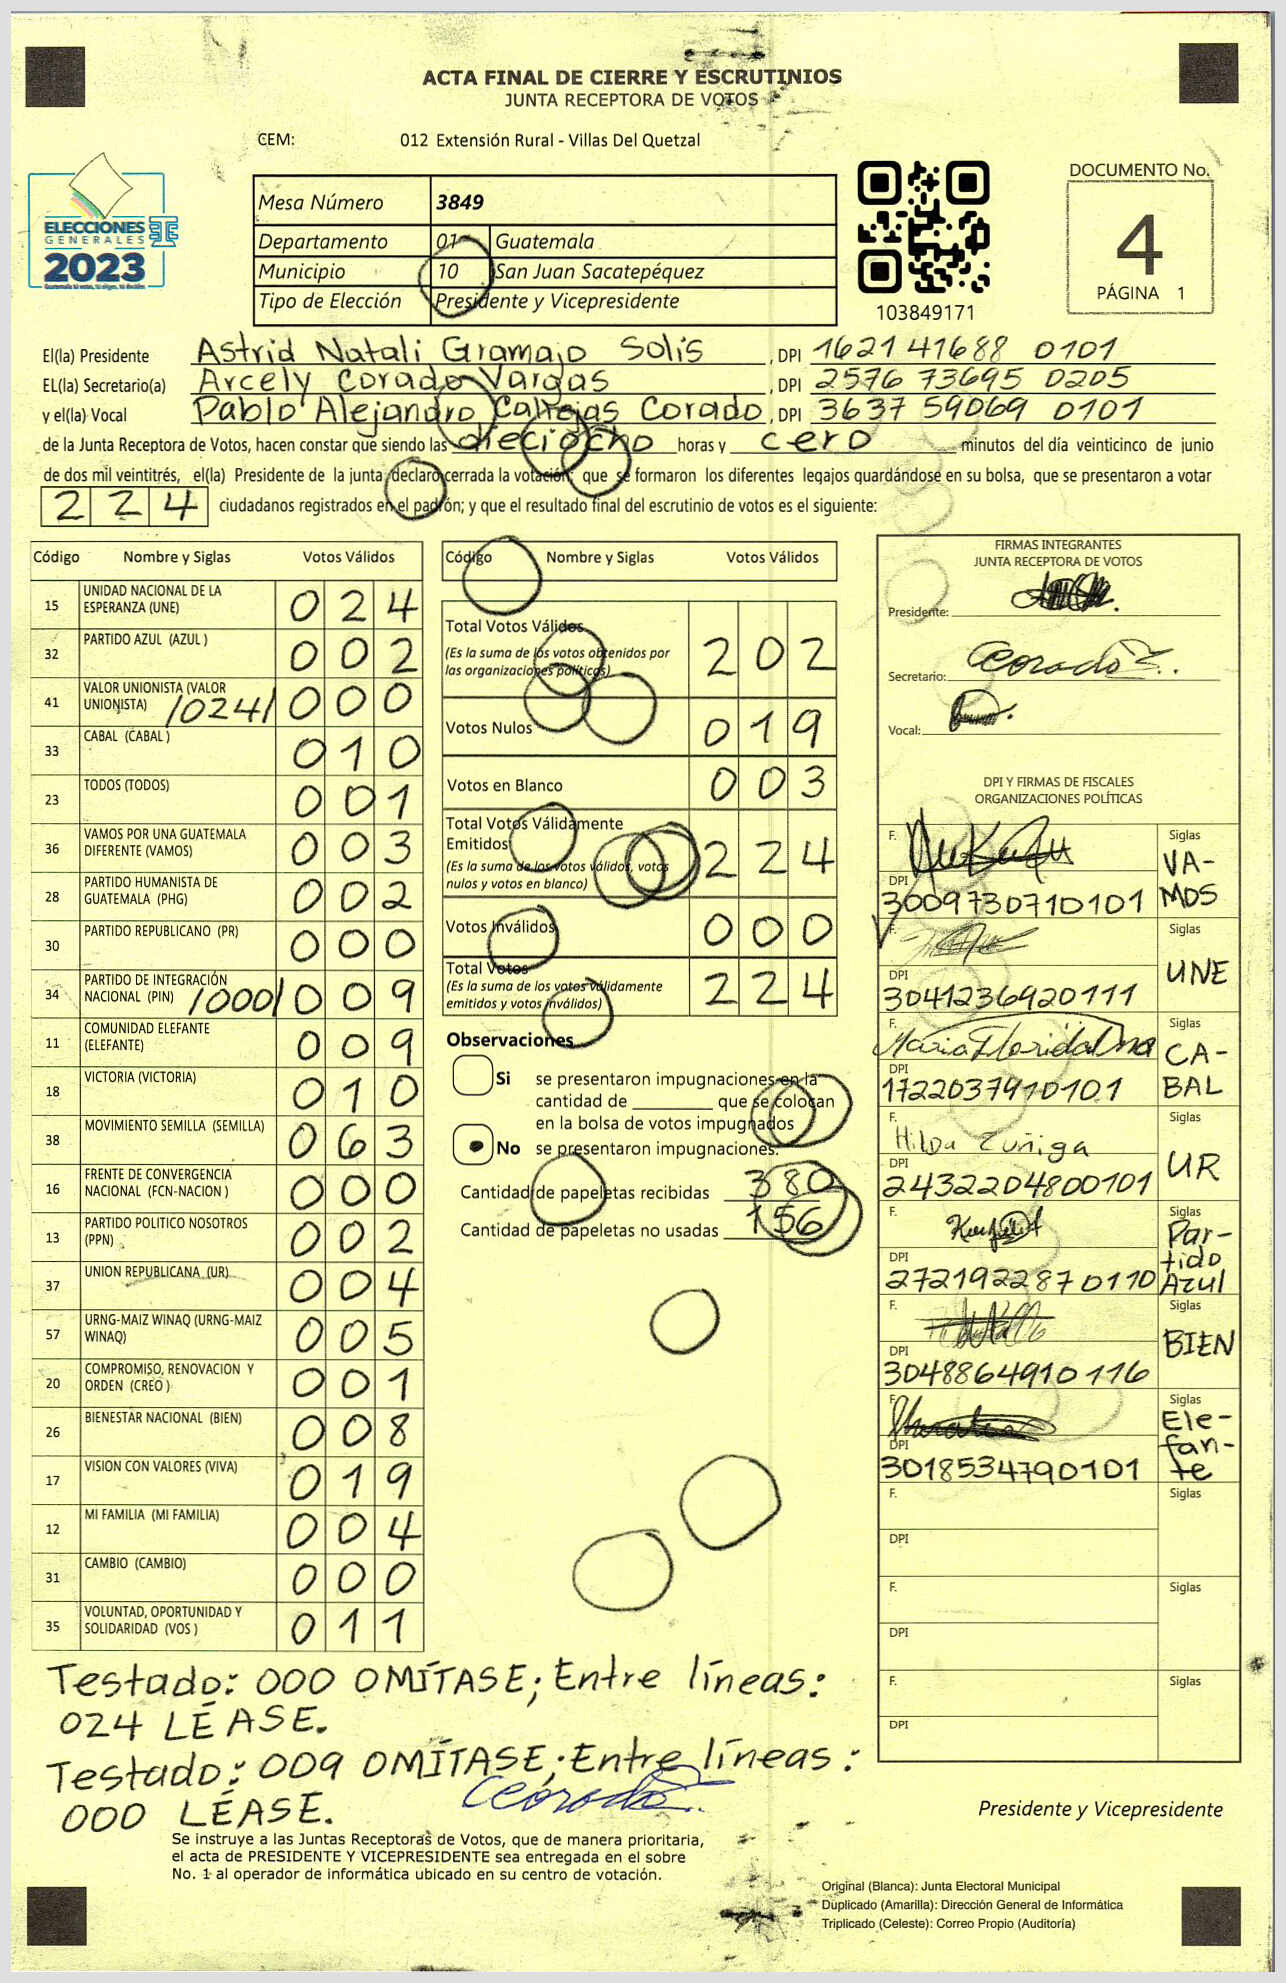 ACTA FINAL DE CIERRE Y ESCRUTINIOS
JUNTA RECEPTORA DE VOTOS
CEM: 012 Extensión Rural - Villas Del Quetzal
ELECCIONES
GENERALES
2023
Mesa Número 3849
Departamento 01 Guatemala
Municipio 10 San Juan Sacatepéquez
Tipo de Elección Presidente y Vicepresidente
103849171
DOCUMENTO No.
4
PÁGINA 1
El(la) Presidente Astrid Natali Gramajo Solis , DPI 1621 41688 0101
EL(la) Secretario(a) Arcely Corado Vargas , DPI 2576 73695 0205
y el(la) Vocal Pablo Alejandro Callejas Corado , DPI 3637 59069 0101
de la Junta Receptora de Votos, hacen constar que siendo las dieciocho horas y cero minutos del día veinticinco de junio
de dos mil veintitrés, el(la) Presidente de la junta declaró cerrada la votación; que se formaron los diferentes legajos guardándose en su bolsa, que se presentaron a votar
224 ciudadanos registrados en el padrón; y que el resultado final del escrutinio de votos es el siguiente:
Código Nombre y Siglas Votos Válidos
15 UNIDAD NACIONAL DE LA ESPERANZA (UNE) 024
32 PARTIDO AZUL (AZUL ) 002
41 VALOR UNIONISTA (VALOR UNIONISTA) /024/ 000
33 CABAL (CABAL ) 010
23 TODOS (TODOS) 001
36 VAMOS POR UNA GUATEMALA DIFERENTE (VAMOS) 003
28 PARTIDO HUMANISTA DE GUATEMALA (PHG) 002
30 PARTIDO REPUBLICANO (PR) 000
34 PARTIDO DE INTEGRACIÓN NACIONAL (PIN) /000/ 009
11 COMUNIDAD ELEFANTE (ELEFANTE) 009
18 VICTORIA (VICTORIA) 010
38 MOVIMIENTO SEMILLA (SEMILLA) 063
16 FRENTE DE CONVERGENCIA NACIONAL (FCN-NACION ) 000
13 PARTIDO POLITICO NOSOTROS (PPN) 002
37 UNION REPUBLICANA (UR) 004
57 URNG-MAIZ WINAQ (URNG-MAIZ WINAQ) 005
20 COMPROMISO, RENOVACION Y ORDEN (CREO ) 001
26 BIENESTAR NACIONAL (BIEN) 008
17 VISION CON VALORES (VIVA) 019
12 MI FAMILIA (MI FAMILIA) 004
31 CAMBIO (CAMBIO) 000
35 VOLUNTAD, OPORTUNIDAD Y SOLIDARIDAD (VOS ) 011
Código Nombre y Siglas Votos Válidos
Total Votos Válidos 202
(Es la suma de los votos obtenidos por
las organizaciones políticas)
Votos Nulos 019
Votos en Blanco 003
Total Votos Válidamente
Emitidos 224
(Es la suma de los votos válidos, votos
nulos y votos en blanco)
Votos Inválidos 000
Total Votos 224
(Es la suma de los votos válidamente
emitidos y votos inválidos)
Observaciones
Si se presentaron impugnaciones en la
cantidad de ________ que se colocan
en la bolsa de votos impugnados
No se presentaron impugnaciones.
Cantidad de papeletas recibidas 380
Cantidad de papeletas no usadas 156
FIRMAS INTEGRANTES
JUNTA RECEPTORA DE VOTOS
Presidente:
Secretario: Corado
Vocal:
DPI Y FIRMAS DE FISCALES
ORGANIZACIONES POLÍTICAS
F. Siglas VA-MOS
DPI 3009730710101
F. Siglas UNE
DPI 3041236920111
F. Maria Floridalma Siglas CA-BAL
DPI 1722037910101
F. Hilda Zuñiga Siglas UR
DPI 2432204800101
F. Siglas Par-tido Azul
DPI 2721922870110
F. Siglas BIEN
DPI 3048864910116
F. Siglas Ele-fan-te
DPI 3018534790101
F. Siglas
DPI
F. Siglas
DPI
F. Siglas
DPI
Testado: 000 OMÍTASE; Entre líneas:
024 LÉASE.
Testado: 009 OMÍTASE; Entre líneas:
000 LÉASE. Corado
Presidente y Vicepresidente
Se instruye a las Juntas Receptoras de Votos, que de manera prioritaria,
el acta de PRESIDENTE Y VICEPRESIDENTE sea entregada en el sobre
No. 1 al operador de informática ubicado en su centro de votación.
Original (Blanca): Junta Electoral Municipal
Duplicado (Amarilla): Dirección General de Informática
Triplicado (Celeste): Correo Propio (Auditoría)